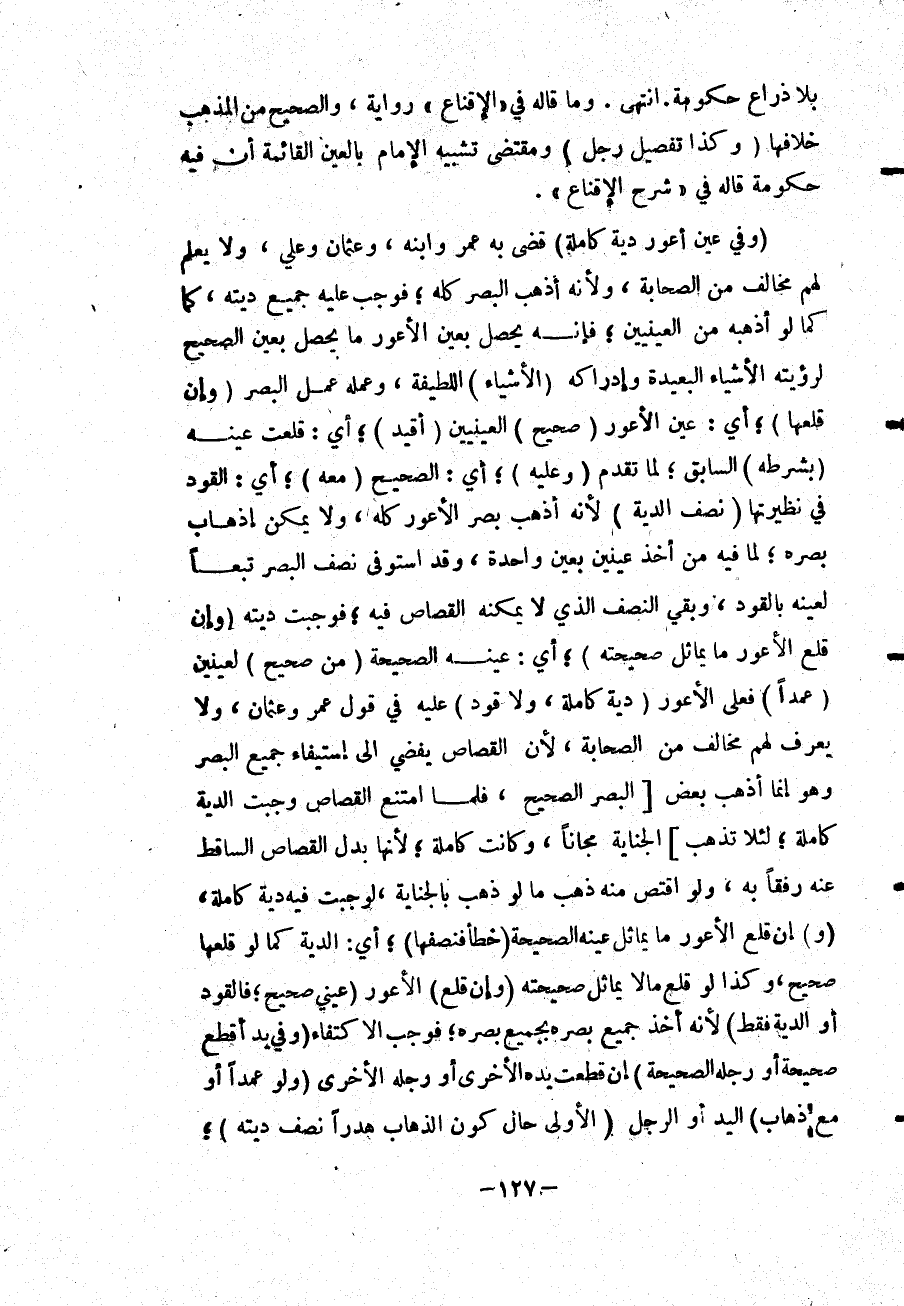 بلا ذراع حكومة. انتهى . وما قاله في «الإقناع » رواية ، والصحيح من المذهب
خلافها ( وكذا تفصيل رجل ) ومقتضى تشبيه الإمام بالعين القائمة أن فيه
حكومة قاله في « شرح الإقناع » .
(وفي عين أعور دية كاملة) قضى به عمر وابنه ، وعثمان وعلي ، ولا يعلم
لهم مخالف من الصحابة ، ولأنه أذهب البصر كله ؛ فوجب عليه جميع ديته ، كما
كما لو أذهبه من العينيين ؛ فإنـه يحصل بعين الأعور ما يحصل بعين الصحيح
لرؤيته الأشياء البعيدة وإدراكه (الأشياء) اللطيفة ، وعمله عمل البصر ( وإن
قلعها ) ؛ أي : عين الأعور ( صحيح ) العينيين ( أقيد ) ؛ أي : قلعت عينـه
(بشرطه) السابق ؛ لما تقدم ( وعليه ) ؛ أي : الصحيح ( معه ) ؛ أي : القود
في نظيرتها ( نصف الدية ) لأنه أذهب بصر الأعور كله ، ولا يمكن إذهاب
بصره ؛ لما فيه من أخذ عينين بعين واحدة ، وقد استوفى نصف البصر تبعـاً
لعينه بالقود ، وبقي النصف الذي لا يمكنه القصاص فيه ؛ فوجبت ديته (وإن
قلع الأعور ما يماثل صحيحته ) ؛ أي : عينـه الصحيحة ( من صحيح ) لعينين
( عمداً ) فعلى الأعور ( دية كاملة ، ولا قود ) عليه في قول عمر وعثمان ، ولا
يعرف لهم مخالف من الصحابة ، لأن القصاص يفضي الى إستيفاء جميع البصر
وهو انما أذهب بعض [ البصر الصحيح ، فلمـا امتنع القصاص وجبت الدية
كاملة ؛ لئلا تذهب ] الجناية مجاناً ، وكانت كاملة ؛ لأنها بدل القصاص الساقط
عنه رفقاً به ، ولو اقتص منه ذهب ما لو ذهب بالجناية ، لوجبت فيه دية كاملة،
(و) ان قلع الأعور ما يماثل عينه الصحيحة (خطأ فنصفها) ؛ أي: الدية كما لو قلعها
صحيح ، وكذا لو قلع مالا يماثل صحيحته (وإن قلع) الأعور (عيني صحيح ؛ فالقود
أو الدية فقط) لأنه أخذ جميع بصره بجميع بصره؛ فوجب الاكتفاء (وفي يد أقطع
صحيحة أو رجله الصحيحة ) إن قطعت يده الأخرى أو وجله الأخرى (ولو عمداً أو
مع إذهاب) اليد أو الرجل ( الأولى حال كون الذهاب هدراً نصف ديته ) ؛
-١٢٧-